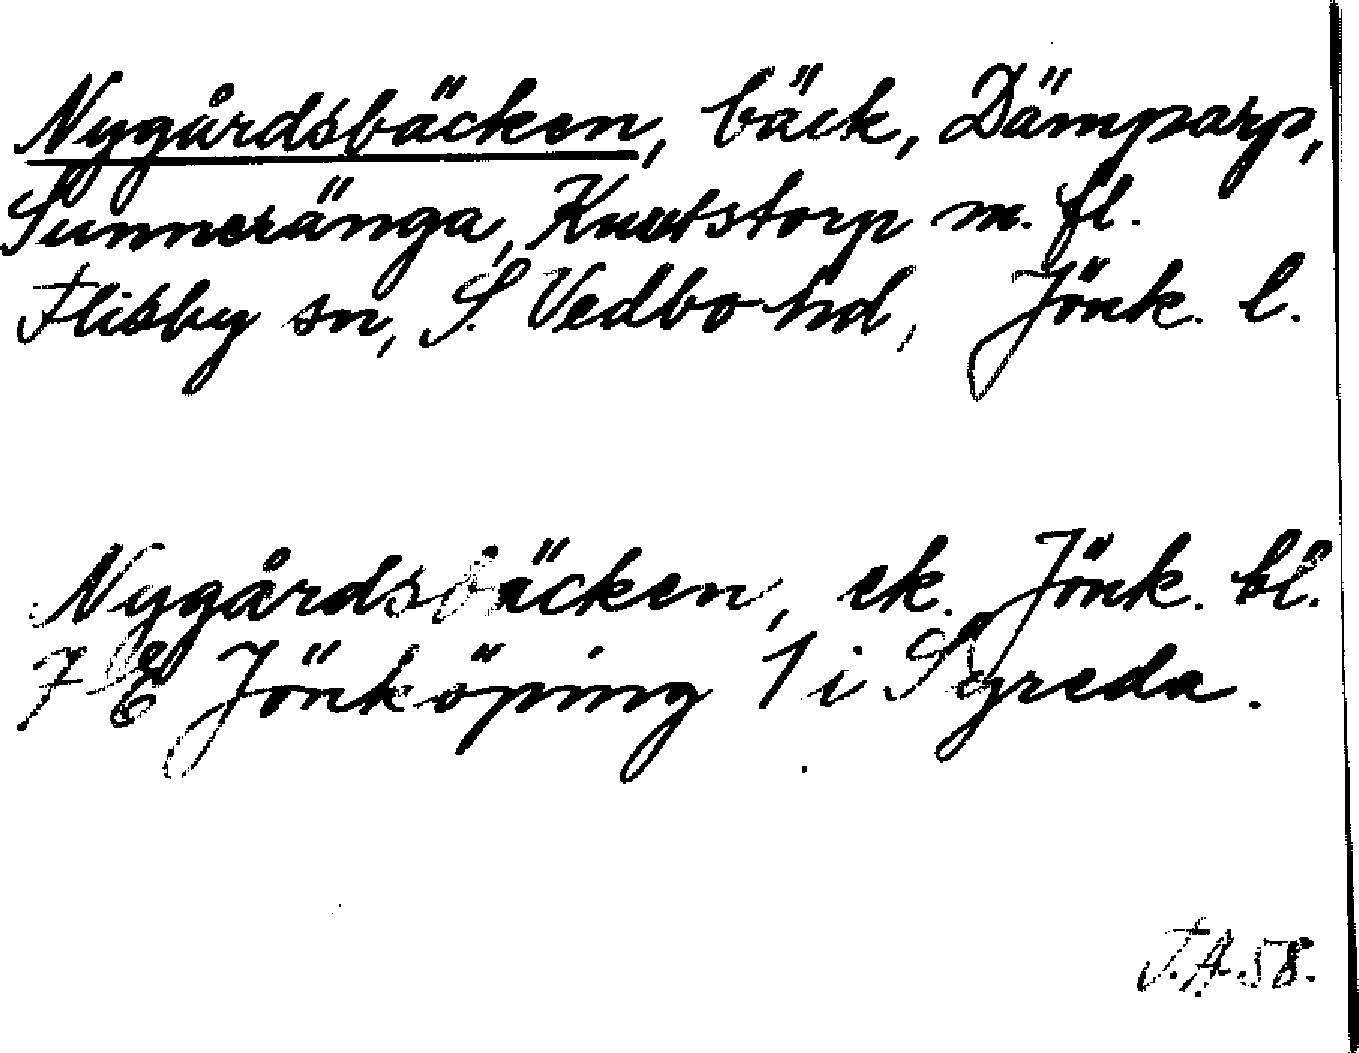 Nygårdsbäcken, bäck, Dämparp,
Sunneränga, Knutstorp m. fl.
Flisby sn, S. Vedbo hd, Jönk. l.
Nygårdsbäcken, ek. Jönk. bl.
7 E Jönköping 1 i Skyreda.
J.A.58.